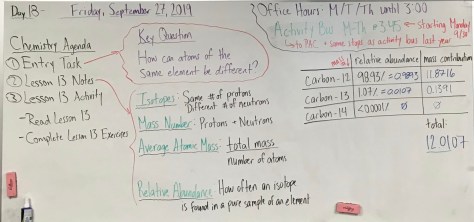 Day 13- Friday, September 27, 2019
Office Hours: M/T/Th until 3:00
Activity Bus M-Th @ 3:45 ← Starting Monday 9/30
↳ to PAC + some stops as activity bus last year
Chemistry Agenda
① Entry Task
② Lesson 13 Notes
③ Lesson 13 Activity
- Read Lesson 13
- Complete Lesson 13 Exercises
Key Question
How can atoms of the
same element be different?
Isotopes: Same # of protons
Different # of neutrons
Mass Number - Protons + Neutrons
Average Atomic Mass: total mass
number of atoms
Relative Abundance: How often an isotope
is found in a pure sample of an element
relative abundance mass contribution
Carbon-12 98.93% = 0.9893 11.8716
Carbon-13 1.07% = 0.0107 0.1391
Carbon-14 <0.0001% Ø Ø
total:
12.0107